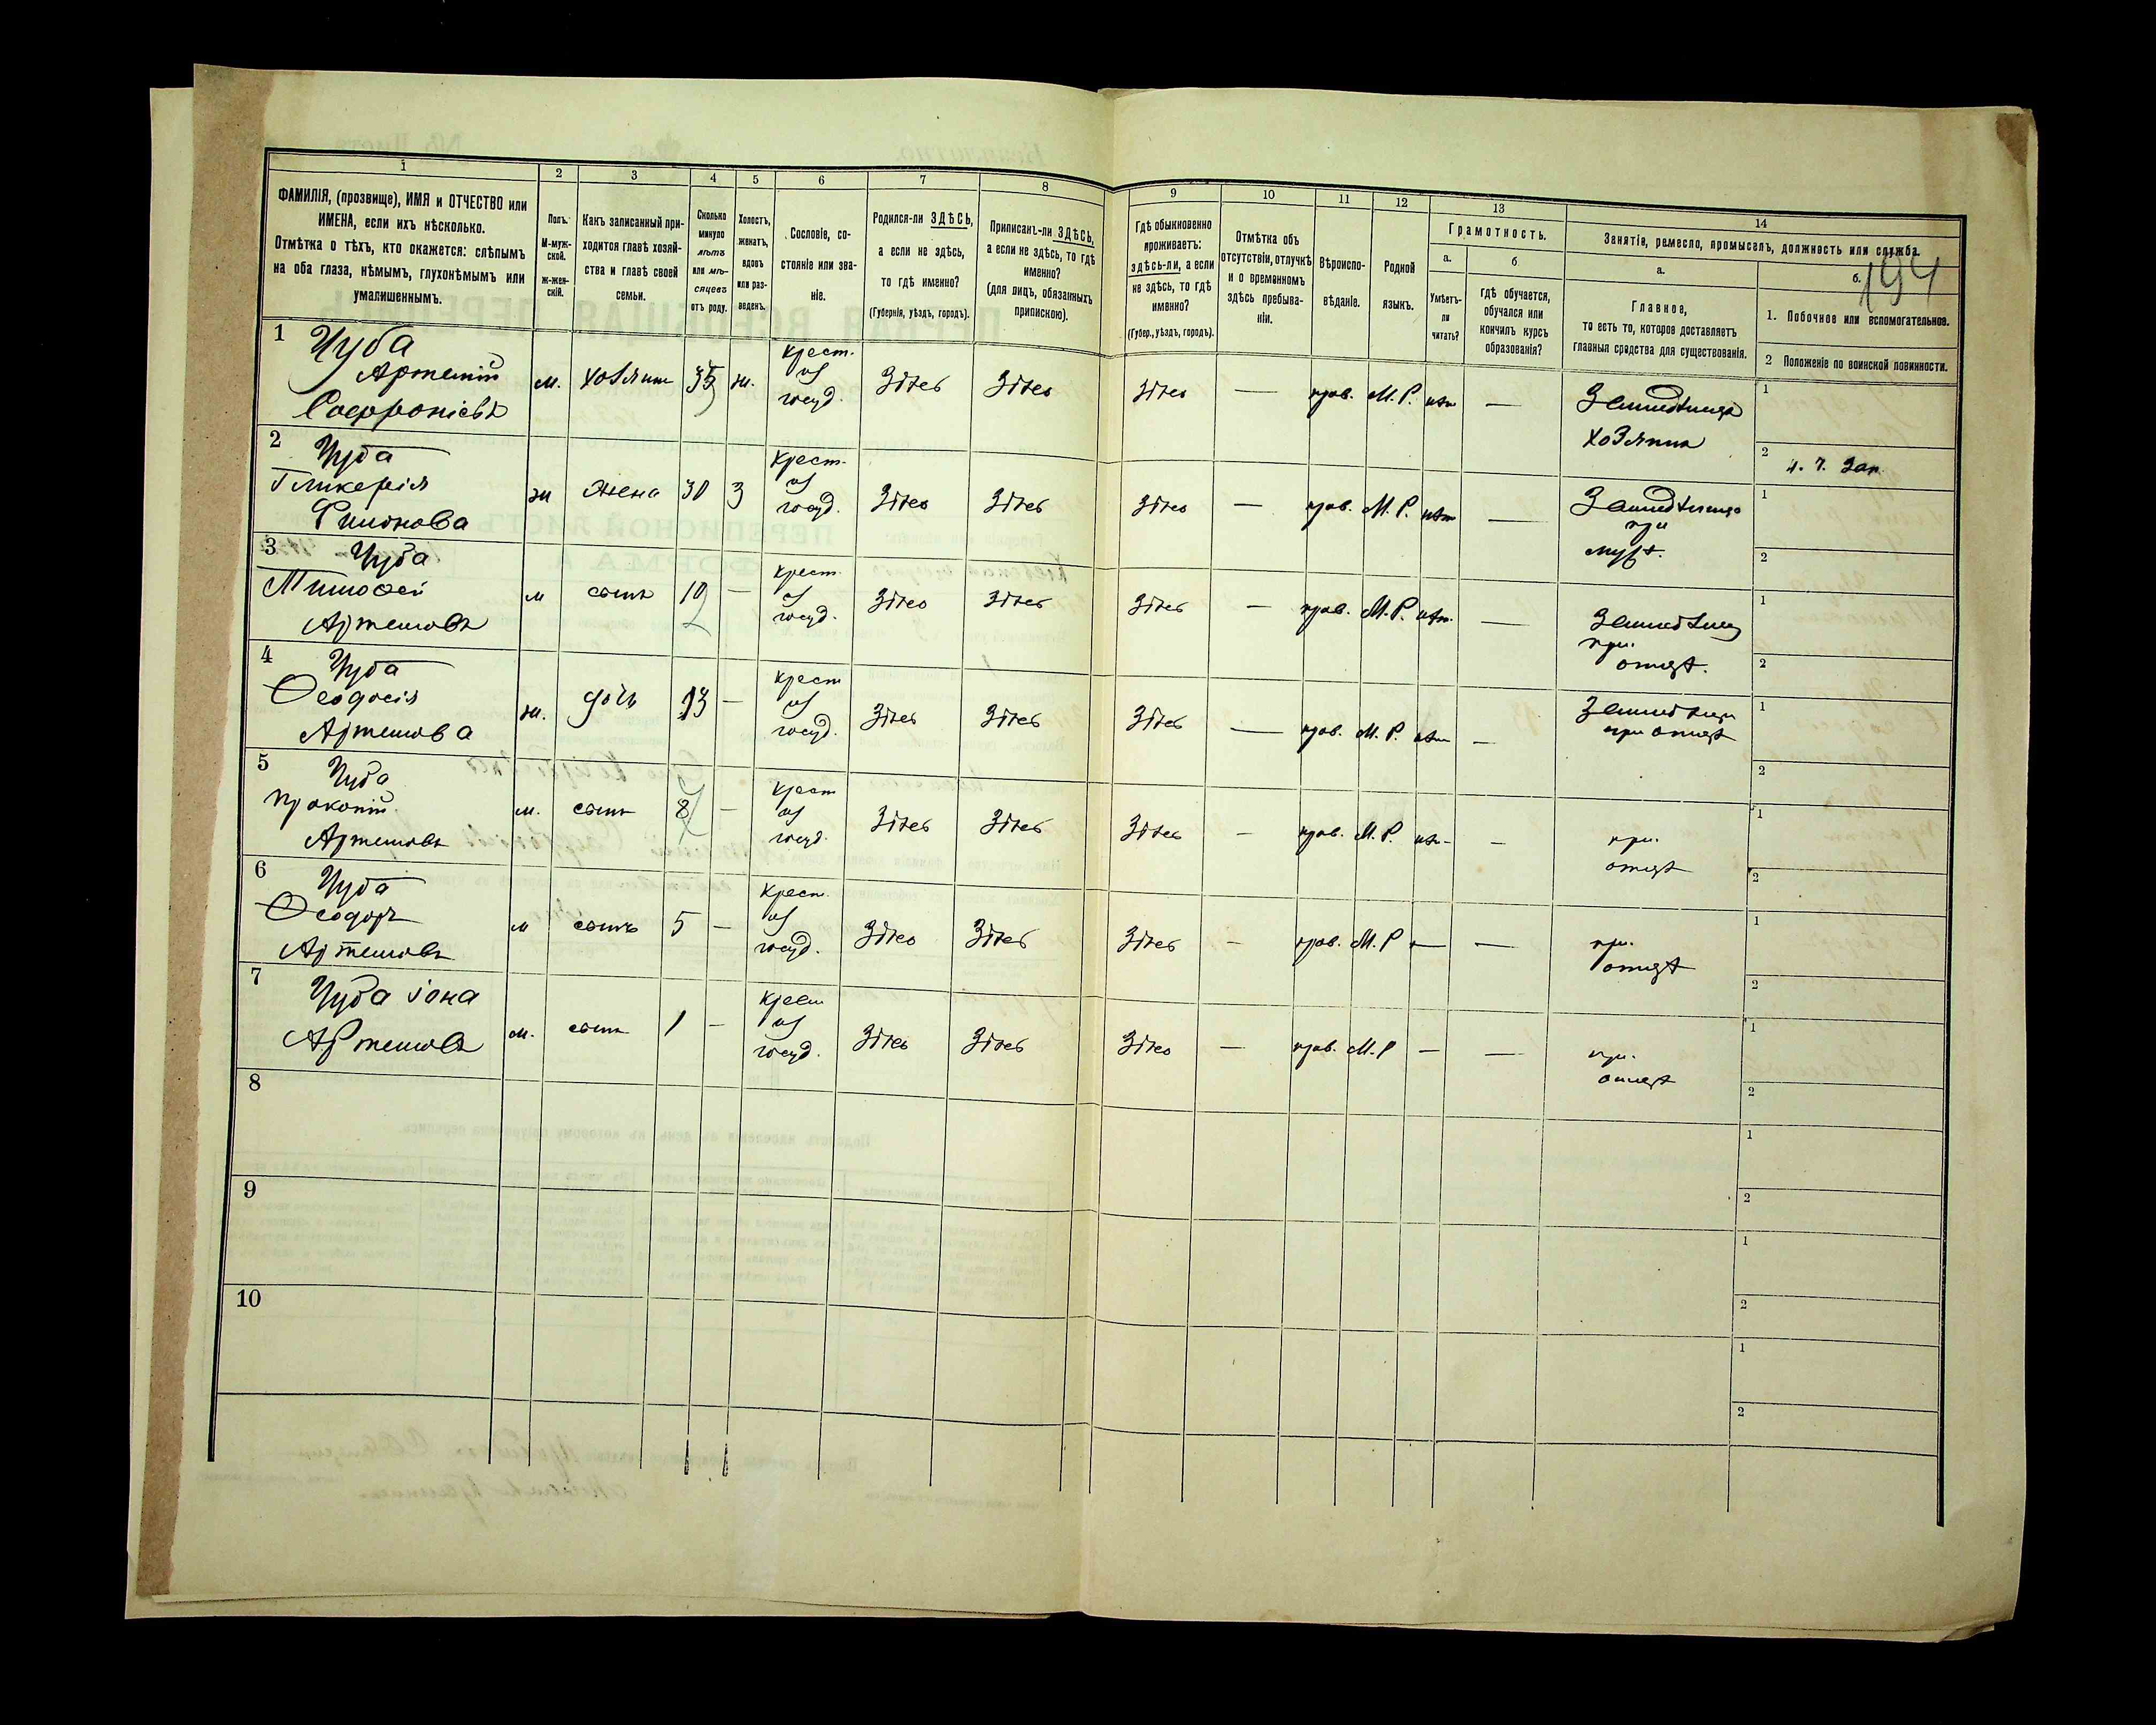 194
1
ФАМИЛІЯ, (прозвище), ИМЯ и ОТЧЕСТВО или
ИМЕНА, если ихъ нѣсколько.
Отмѣтка о тѣхъ, кто окажется: слѣпымъ
на оба глаза, нѣмымъ, глухонѣмымъ или
умалишеннымъ.
2
Полъ.
М-муж-
ской.
ж-жен-
скій.
3
Какъ записанный при-
ходится главѣ хозяй-
ства и главѣ своей
семьи.
4
Сколько
минуло
лѣтъ
или мѣ-
сяцевъ
отъ роду.
5
Холостъ,
женатъ,
вдовъ
или раз-
веденъ.
6
Сословіе, со-
стояніе или зва-
ніе.
7
Родился-ли ЗДѢСЬ,
а если не здѣсь,
то гдѣ именно?
(Губернія, уѣздъ, городъ).
8
Приписанъ-ли ЗДѢСЬ,
а если не здѣсь, то гдѣ
именно?
(для лицъ, обязанныхъ
припискою).
9
Гдѣ обыкновенно
проживаетъ:
здѣсь-ли, а если
не здѣсь, то гдѣ
именно?
(Губер., уѣздъ, городъ).
10
Отмѣтка объ
отсутствіи, отлучкѣ
и о временномъ
здѣсь пребыва-
ніи.
11
Вѣроиспо-
вѣданіе.
12
Родной
языкъ.
13
Грамотность.
а.
Умѣетъ-
ли
читать?
б.
гдѣ обучается,
обучался или
кончилъ курсъ
образованія?
14
Занятіе, ремесло, промыселъ, должность или служба.
а.
Главное,
то есть то, которое доставляетъ
главныя средства для существованія.
б.
1. Побочное или вспомогательное.
2 Положеніе по воинской повинности.
1
Чуба
Артемій
Софроніевъ
м.
хозяинъ
35
ж.
крест.
из
госуд.
Здѣсь
Здѣсь
Здѣсь
—
прав.
М.Р.
нѣт
—
Земледѣлецъ
хозяинъ
1
2
2
Чуба
Гликерія
Филонова
ж
жена
30
З
крест.
из
госуд.
Здѣсь
Здѣсь
Здѣсь
—
прав.
М.Р.
нѣт
—
при
мужѣ.
1
2
3
Чуба
Тимофей
Артемовъ
м
сынъ
10
—
крест.
из
госуд.
Здѣсь
Здѣсь
Здѣсь
—
прав.
М.Р.
нѣт.
—
при.
отцѣ.
1
2
4
Чуба
Ѳеодосія
Артемова
ж.
дочь
13
—
крест
из
госуд.
Здѣсь
Здѣсь
Здѣсь
—
прав.
М.Р.
нѣт
—
при отцѣ
1
2
5
Чуба
Прокопій
Артемовъ
м.
сынъ
8
—
крест
из
госуд.
Здѣсь
Здѣсь
Здѣсь
—
прав.
М.Р.
нѣт
—
при.
отцѣ
1
2
6
Чуба
Ѳеодоръ
Артемовъ
м
сынъ
5
—
крест.
из
госуд.
Здѣсь
Здѣсь
Здѣсь
—
прав.
М.Р
—
—
при.
отцѣ
1
2
7
Чуба іона
Артемовъ
м.
сынъ
1
—
крест
из
госуд.
Здѣсь
Здѣсь
Здѣсь
—
прав.
М.Р
—
—
при.
отцѣ
1
2
8
1
2
9
1
2
10
1
2